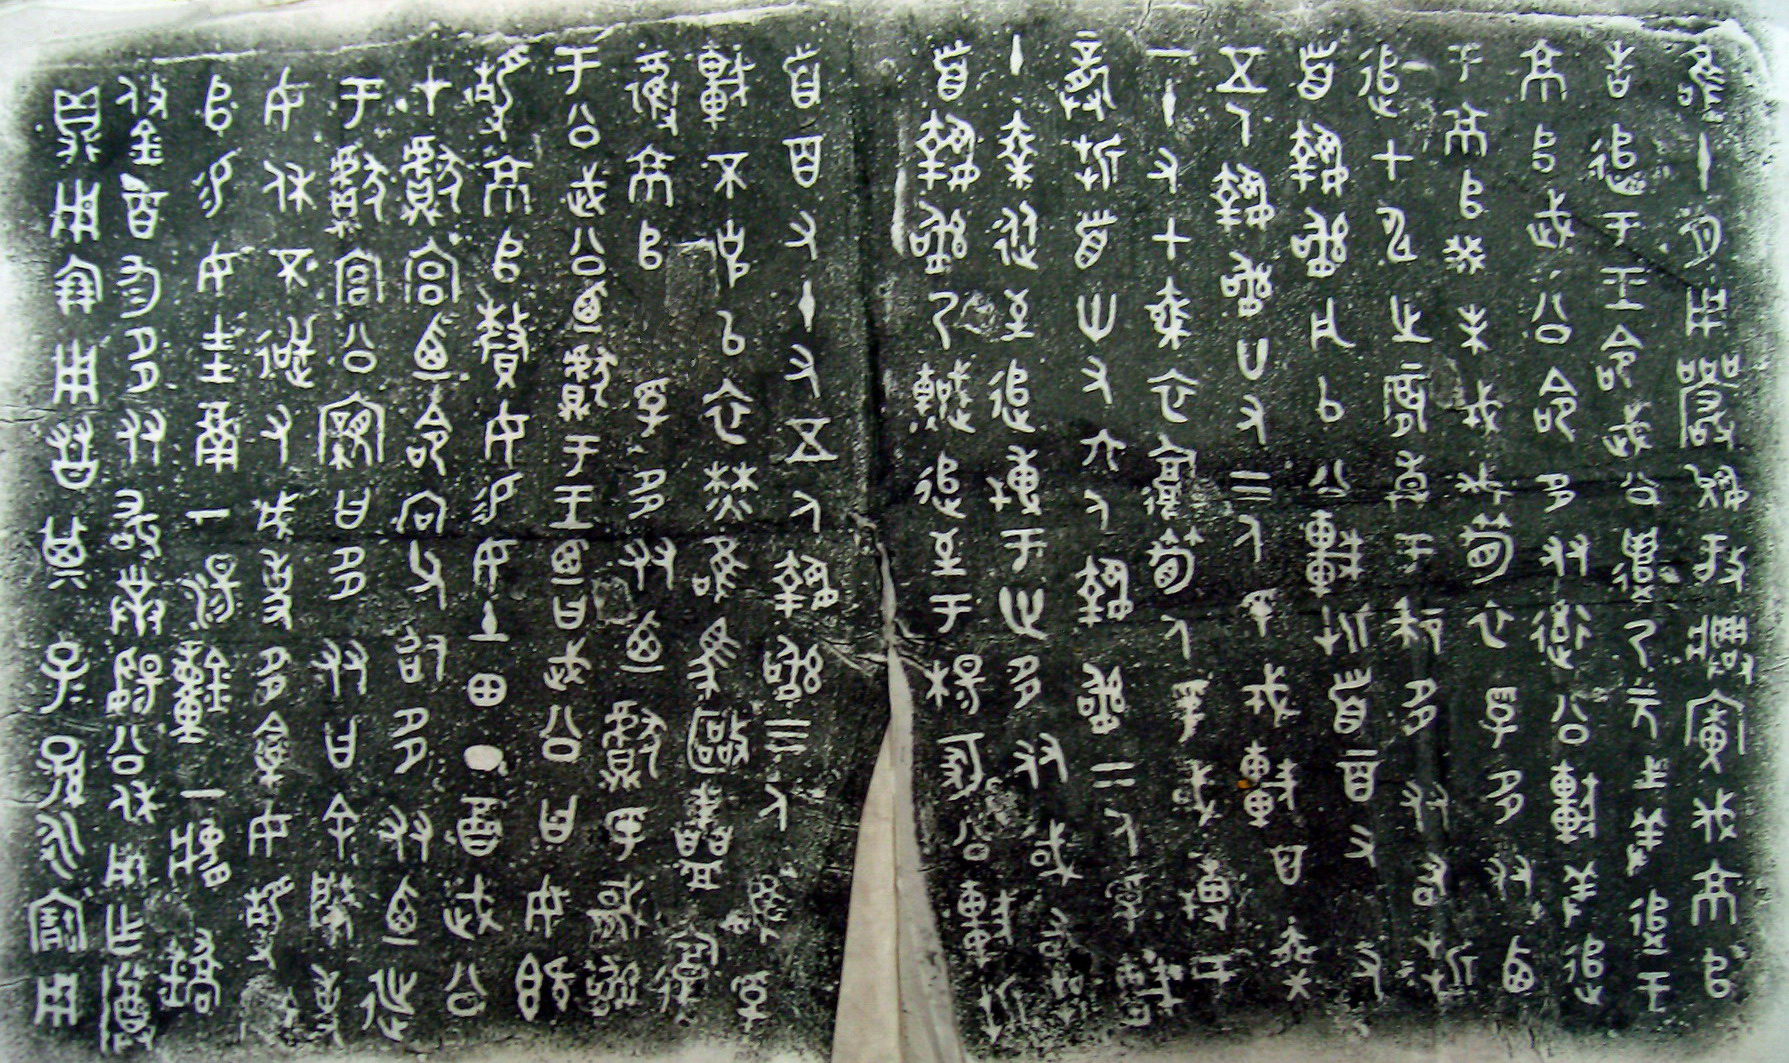 唯十月用嚴允放興廣伐京𠂤
告追于王命武公遣乃元士羞追于
京𠂤武公命多友率公車羞追
于京𠂤癸未戎伐筍衣孚多友西
追甲申之晨搏于漆多友右折
首執訊凡以公車折首二百又又
五人執訊廿又三人孚戎車百乘
一十又七乘衣復筍人孚或搏于
龏折首卅又六人執訊二人孚車
十乘從至追搏于世多友或又折
首執訊乃轊追至于楊冢公車折
首百又十又五人執訊三人唯孚
車不克以衣焚唯馬敺盡復
奪京𠂤之孚多友迺獻孚馘訊
于公武公迺獻于王迺曰武公曰女
既靜京𠂤釐女易女土田丁酉武公
才獻宮迺命向父召多友迺延
于獻宮公親曰多友曰余肈事
女休不逆又成事多禽女靜京
𠂤易女圭瓚一湯鐘一肆鐈
鋚百匀多友敢對揚公休用乍尊
鼎用倗用友其子子孫永寶用